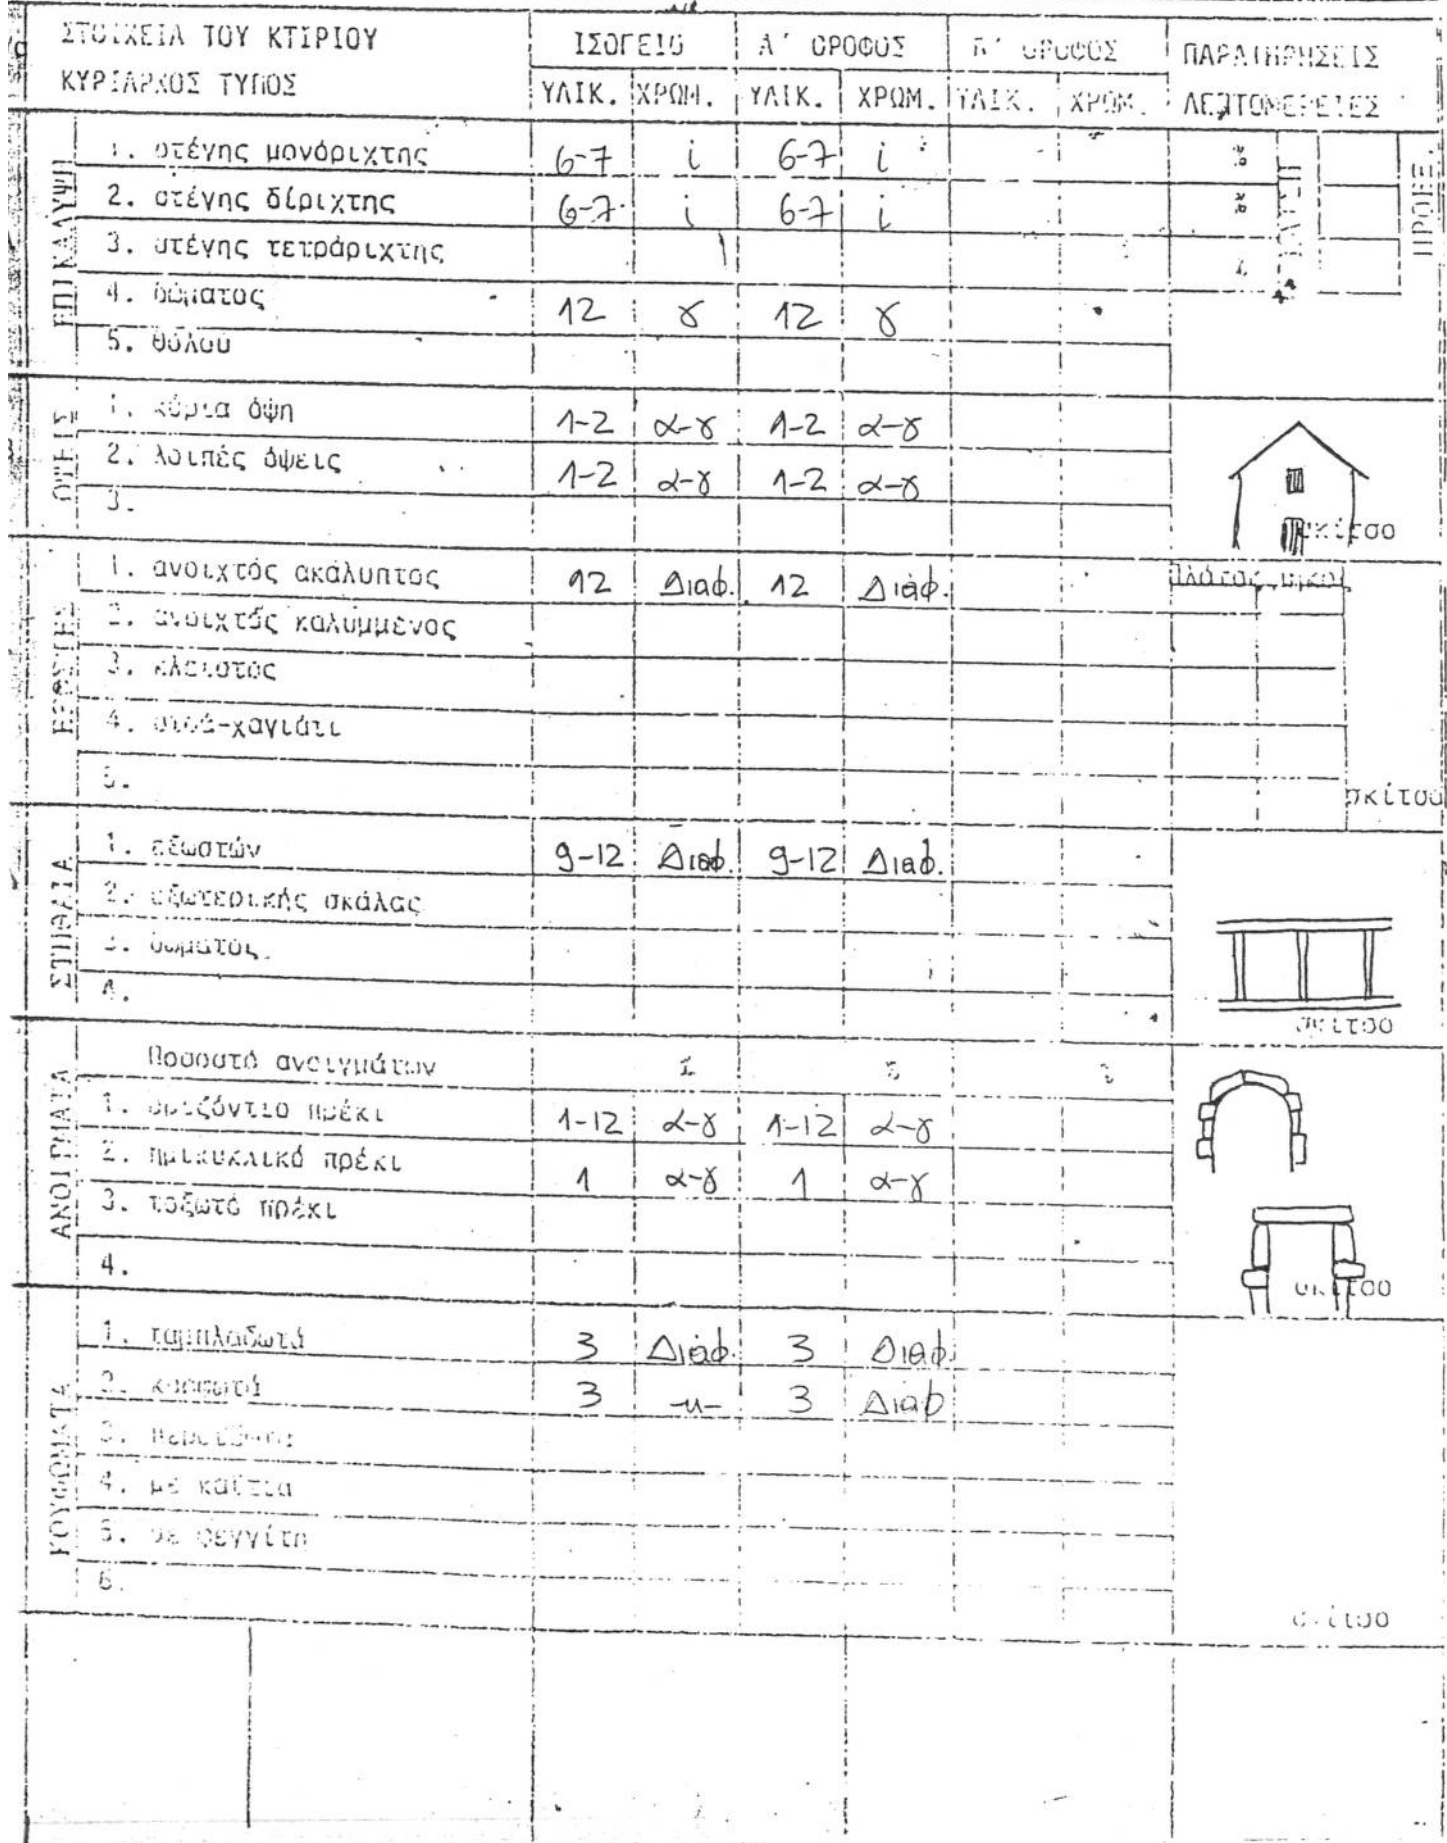 ΣΤΟΙΧΕΙΑ ΤΟΥ ΚΤΙΡΙΟΥ ΙΣΟΓΕΙΟ Α΄ ΟΡΟΦΟΣ Β΄ ΟΡΟΦΟΣ ΠΑΡΑΤΗΡΗΣΕΙΣ
ΚΥΡΙΑΡΧΟΣ ΤΥΠΟΣ ΥΛΙΚ. ΧΡΩΜ. ΥΛΙΚ. ΧΡΩΜ. ΥΛΙΚ. ΧΡΩΜ. ΛΕΠΤΟΜΕΡΕΙΕΣ
ΕΠΙΚΑΛΥΨΗ
1. στέγης μονόριχτης 6-7 i 6-7 i
2. στέγης δίριχτης 6-7 i 6-7 i
3. στέγης τετράριχτης
4. δώματος 12 γ 12 γ
5. θόλου
ΚΛΙΣΗ
ΠΡΟΕΞ.
ΟΨΕΙΣ
1. κύρια όψη 1-2 α-γ 1-2 α-γ
2. λοιπές όψεις 1-2 α-γ 1-2 α-γ
3.
σκίτσο
ΕΞΩΣΤΕΣ
1. ανοιχτός ακάλυπτος 12 Διαφ. 12 Διάφ. πλάτος μήκος
2. ανοιχτός καλυμμένος
3. κλειστός
4. στοά-χαγιάτι
5.
σκίτσο
ΣΤΗΘΑΙΑ
1. εξωστών 9-12 Διαφ. 9-12 Διαφ.
2. εξωτερικής σκάλας
3. δώματος
4.
σκίτσο
ΑΝΟΙΓΜΑΤΑ
Ποσοστό ανοιγμάτων
1. οριζόντιο πρέκι 1-12 α-γ 1-12 α-γ
2. ημικυκλικό πρέκι 1 α-γ 1 α-γ
3. τοξωτό πρέκι
4.
σκίτσο
ΚΟΥΦΩΜΑΤΑ
1. ταμπλαδωτά 3 Διάφ. 3 Διαφ.
2. καρφωτά 3 -//- 3 Διαφ
3.
4. με καΐτια
5. με φεγγίτη
6.
σκίτσο